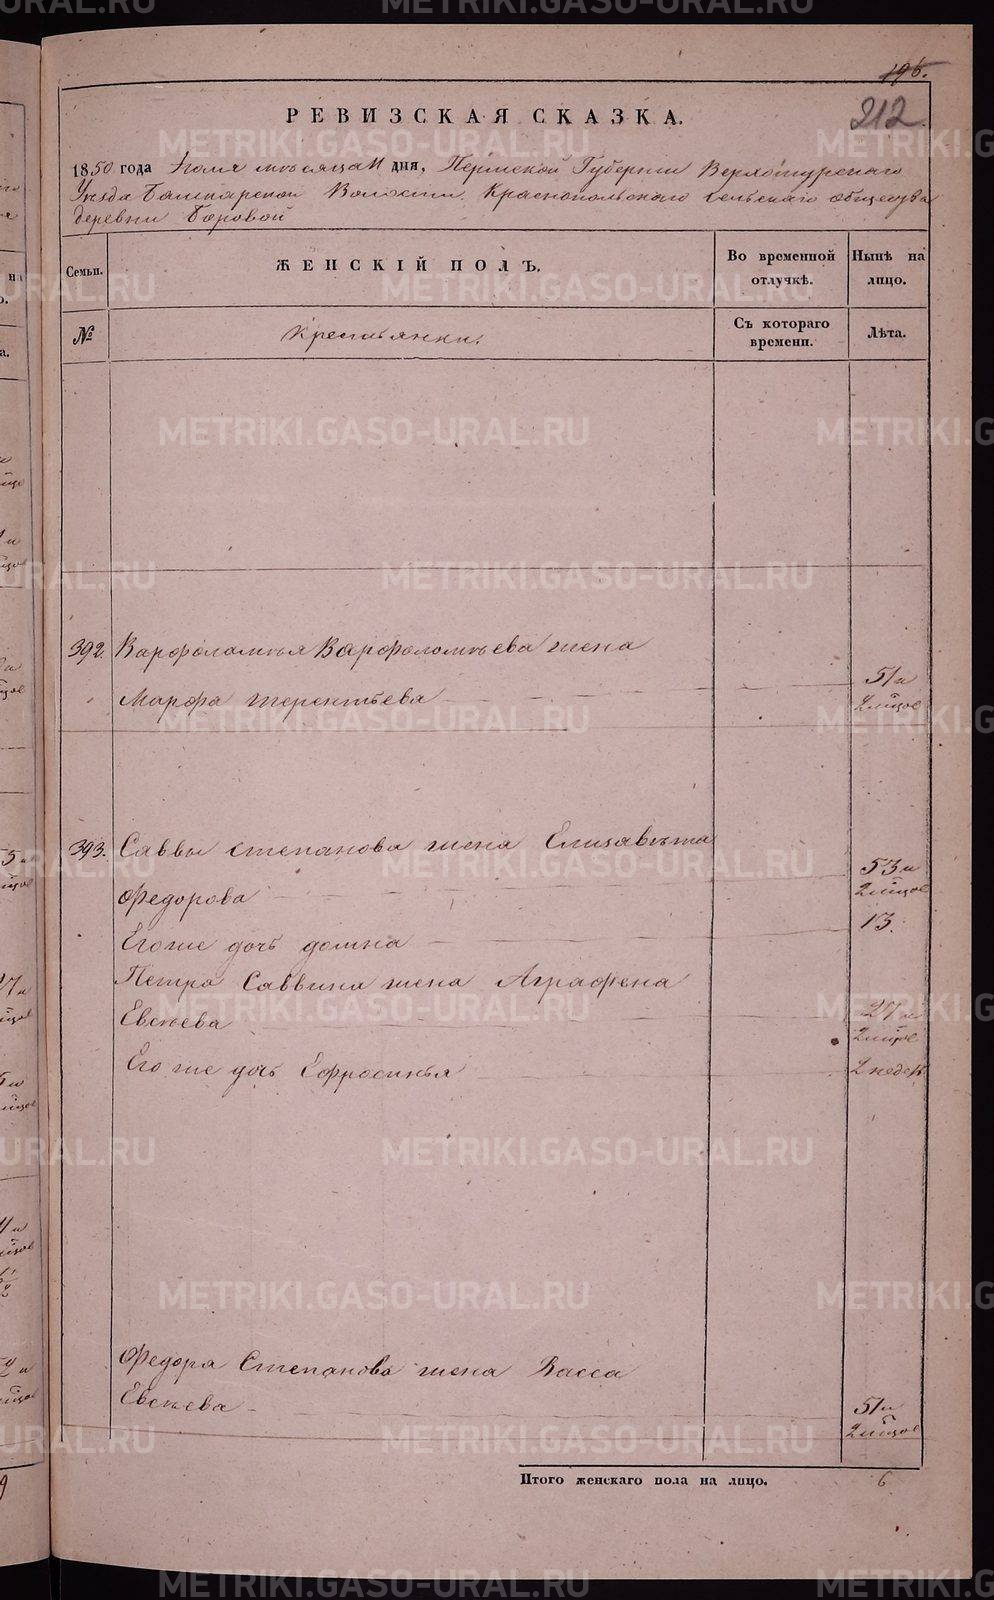 195.
212
РЕВИЗСКАЯ СКАЗКА.
1850 года Іюля мѣсяца 11 дня, Пермской Губерніи Верхотурскаго
Уѣзда Башкарской Волости Краснопольскаго сельскаго общества
деревни Боровой
Семьи. ЖЕНСКІЙ ПОЛЪ. Во временной отлучкѣ. Нынѣ на лицо.
№ Крестьянки. Съ котораго времени. Лѣта.
392. Варфоламѣя Варфоломѣева жена
Марфа Терентьева 51 и
2 мѣсяц
393. Саввы Степанова жена Елизавѣта
Федорова 53 и
2 мѣсяц
Его же дочь Домна 13.
Петра Саввина жена Аграфена
Евсѣева 27 и
2 мѣсяц
Его же дочь Ефросинья 2 недел
Федора Степанова жена Васса
Евсѣева 51 и
2 мѣсяц
Итого женскаго пола на лицо. 6
METRIKI.GASO-URAL.RU